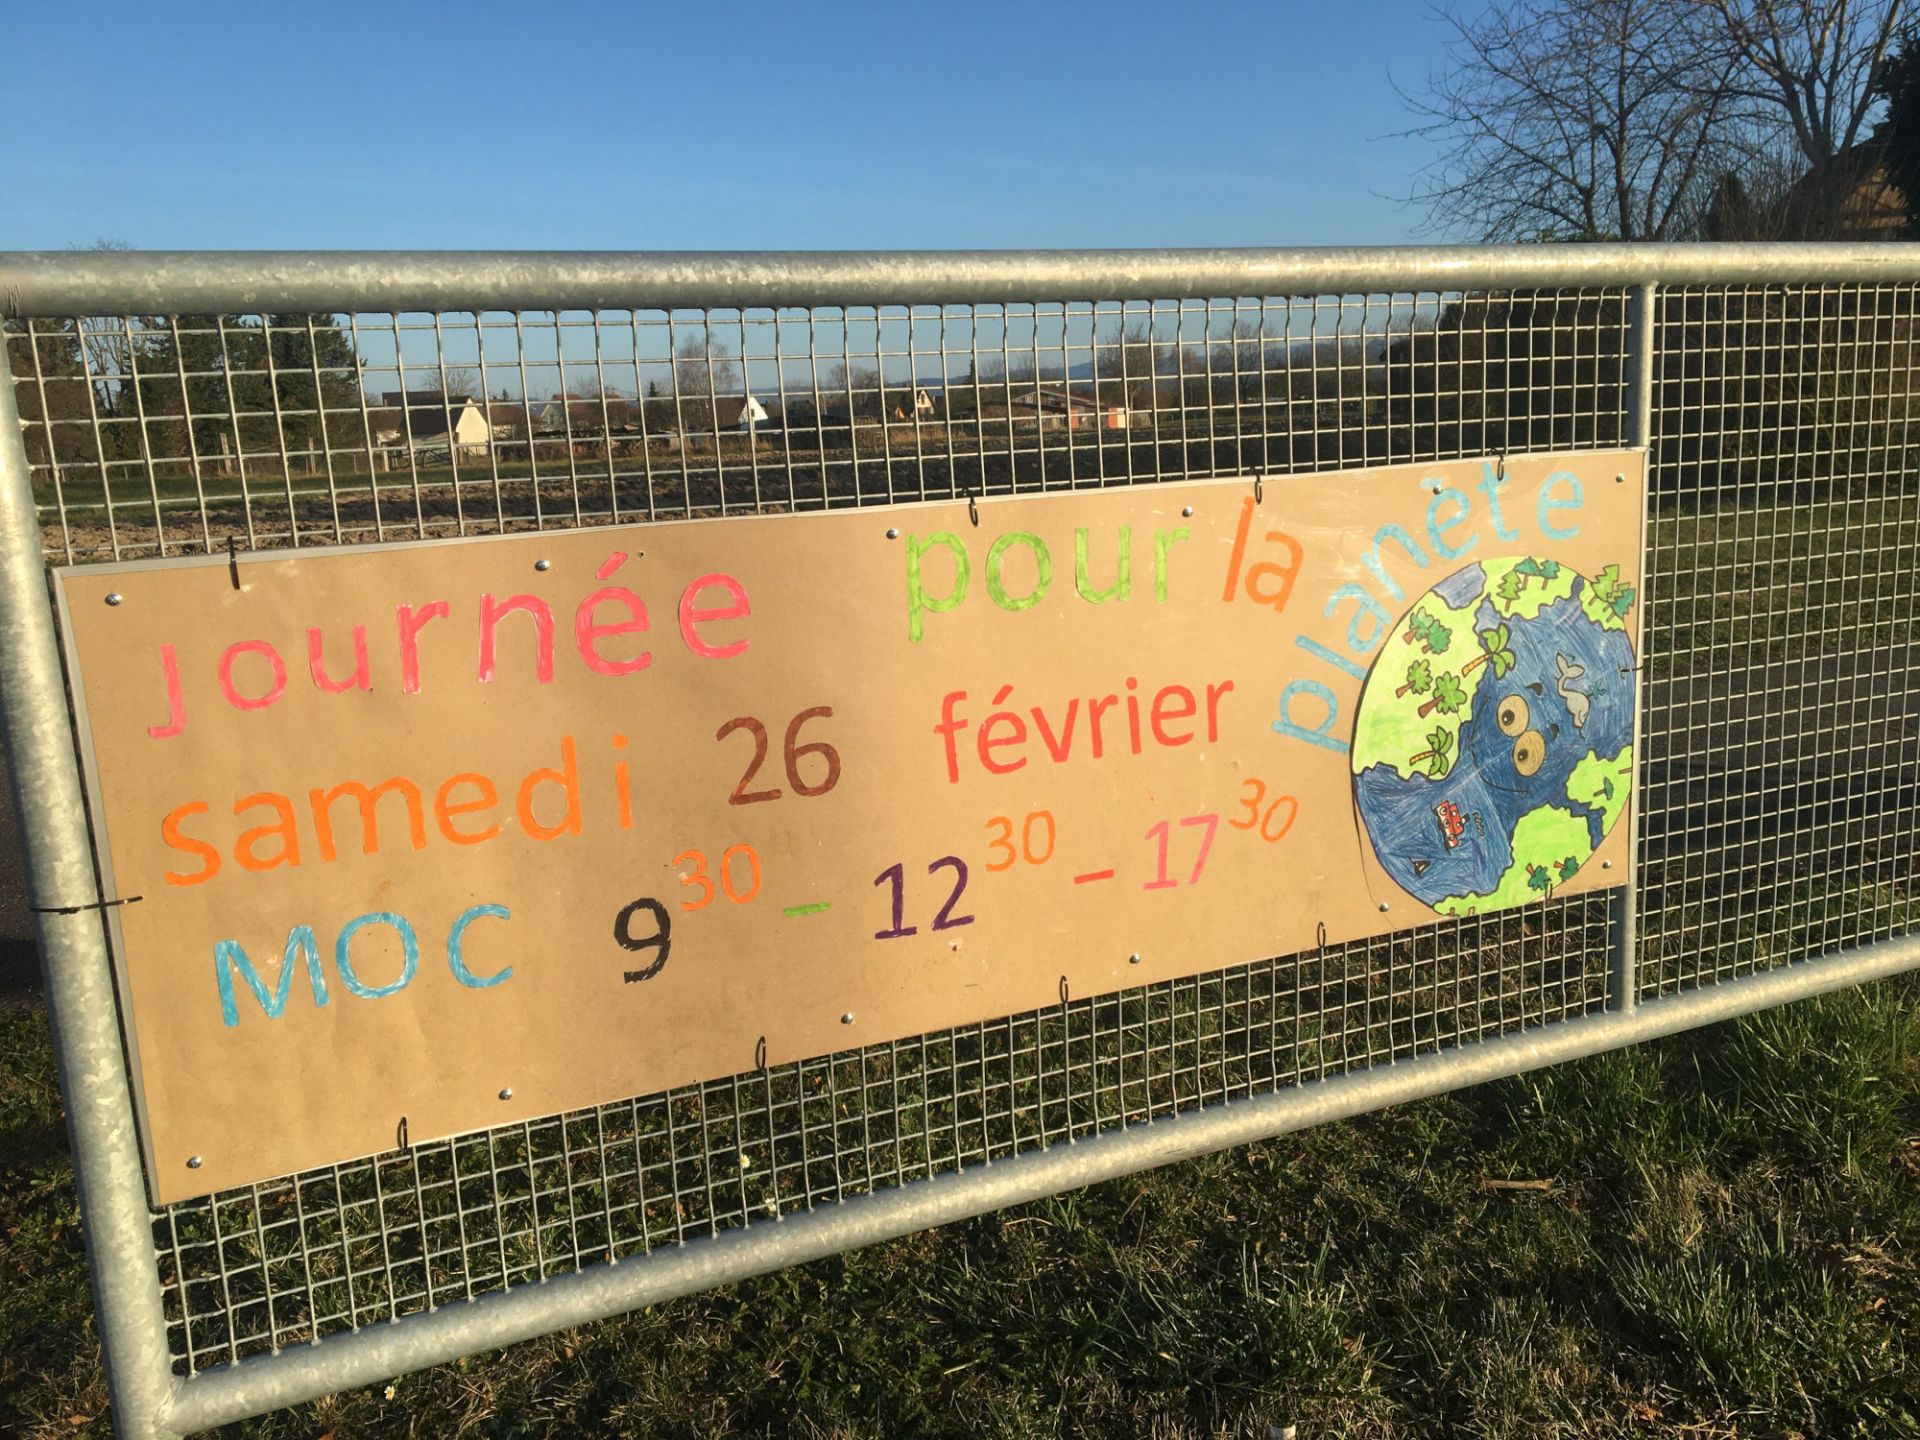 journée pour la planète
samedi 26 février
MOC 9³⁰ – 12³⁰ – 17³⁰